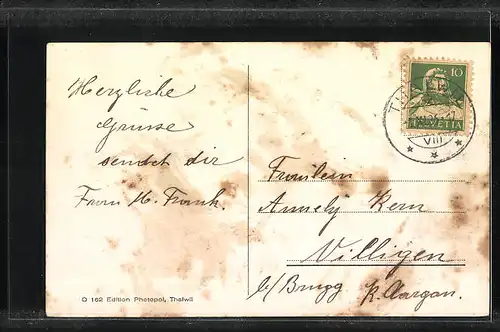 Herzliche
Grüsse
sendet dir
Frau M. Frank.
Q 162 Edition Photopol, Thalwil
10
HELVETIA
VIII
Fräulein
Amely Kern
Villigen
b/Brugg K. Aargau.